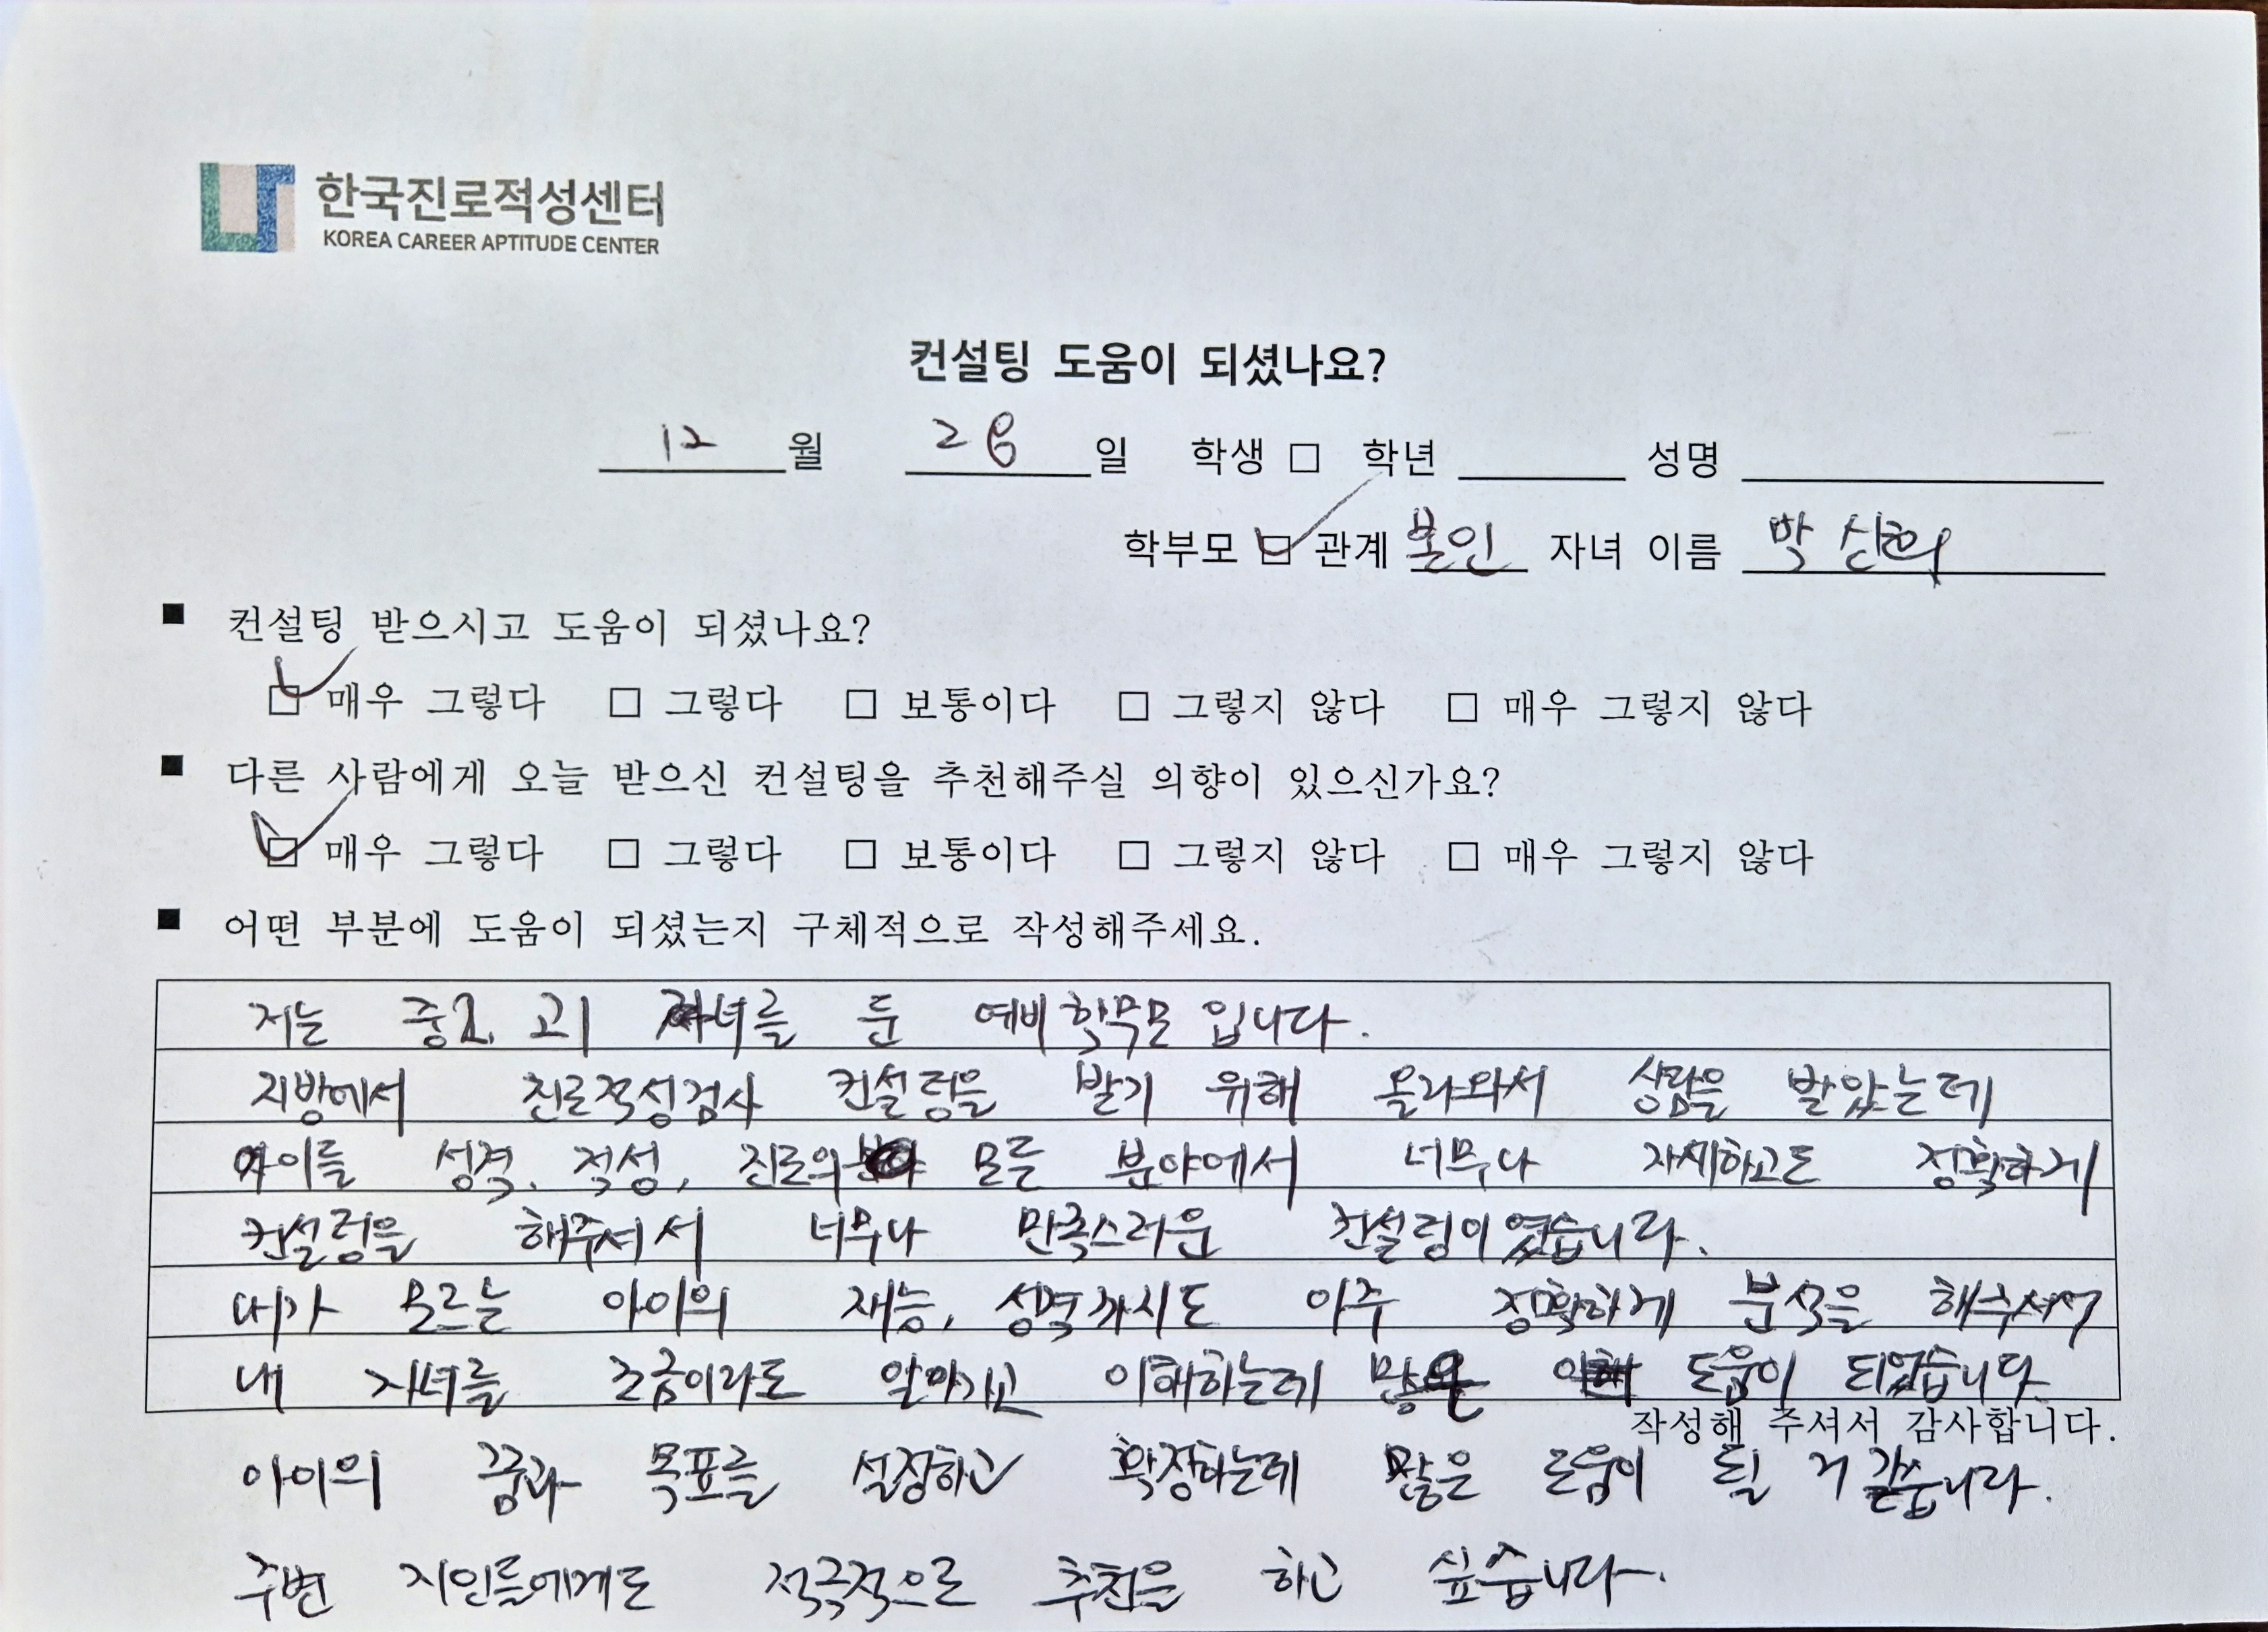 한국진로적성센터
KOREA CAREER APTITUDE CENTER
컨설팅 도움이 되셨나요?
12 월 26 일 학생 □ 학년 성명
학부모 ☑ 관계 본인 자녀 이름 박 신희
■ 컨설팅 받으시고 도움이 되셨나요?
☑ 매우 그렇다 □ 그렇다 □ 보통이다 □ 그렇지 않다 □ 매우 그렇지 않다
■ 다른 사람에게 오늘 받으신 컨설팅을 추천해주실 의향이 있으신가요?
☑ 매우 그렇다 □ 그렇다 □ 보통이다 □ 그렇지 않다 □ 매우 그렇지 않다
■ 어떤 부분에 도움이 되셨는지 구체적으로 작성해주세요.
저는 중2, 고1 자녀를 둔 예비학부모 입니다.
지방에서 진로적성검사 컨설팅을 받기 위해 올라와서 상담을 받았는데
아이를 성격, 적성, 진로의 모든 분야에서 너무나 자세하고도 정확하게
컨설팅을 해주셔서 너무나 만족스러운 컨설팅이였습니다.
내가 모르는 아이의 재능, 성격까지도 아주 정확하게 분석을 해주셔서
내 자녀를 조금이라도 알아가고 이해하는데 많은 도움이 되었습니다
작성해 주셔서 감사합니다.
아이의 꿈과 목표를 설정하고 확장하는데 많은 도움이 될 거 같습니다.
주변 지인들에게도 적극적으로 추천을 하고 싶습니다.